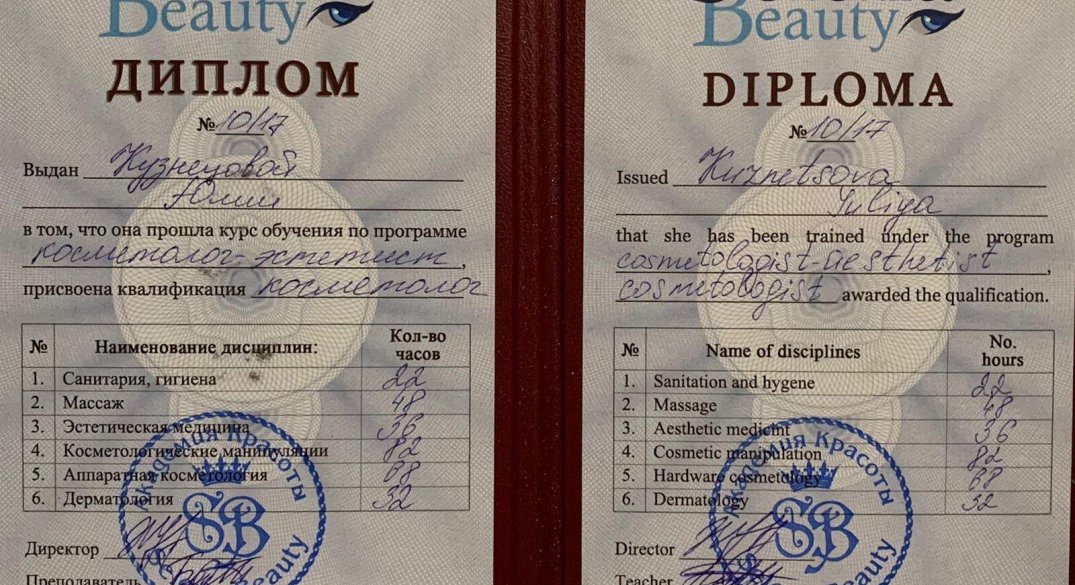 Beauty
ДИПЛОМ
№ 10/17
Выдан Кузнецовой
Юлии
в том, что она прошла курс обучения по программе
косметолог-эстетист,
присвоена квалификация косметолог
№ Наименование дисциплин: Кол-во часов
1. Санитария, гигиена 22
2. Массаж 48
3. Эстетическая медицина 36
4. Косметологические манипуляции 82
5. Аппаратная косметология 68
6. Дерматология 32
Академия Красоты
SB
Beauty
Директор
Преподаватель
Beauty
DIPLOMA
№ 10/17
Issued Kuznetsova
Iuliya
that she has been trained under the program
cosmetologist-aesthetist,
cosmetologist awarded the qualification.
№ Name of disciplines No. hours
1. Sanitation and hygene 22
2. Massage 48
3. Aesthetic medicint 36
4. Cosmetic manipulation 82
5. Hardware cosmetology 68
6. Dermatology 32
Академия Красоты
SB
Beauty
Director
Teacher